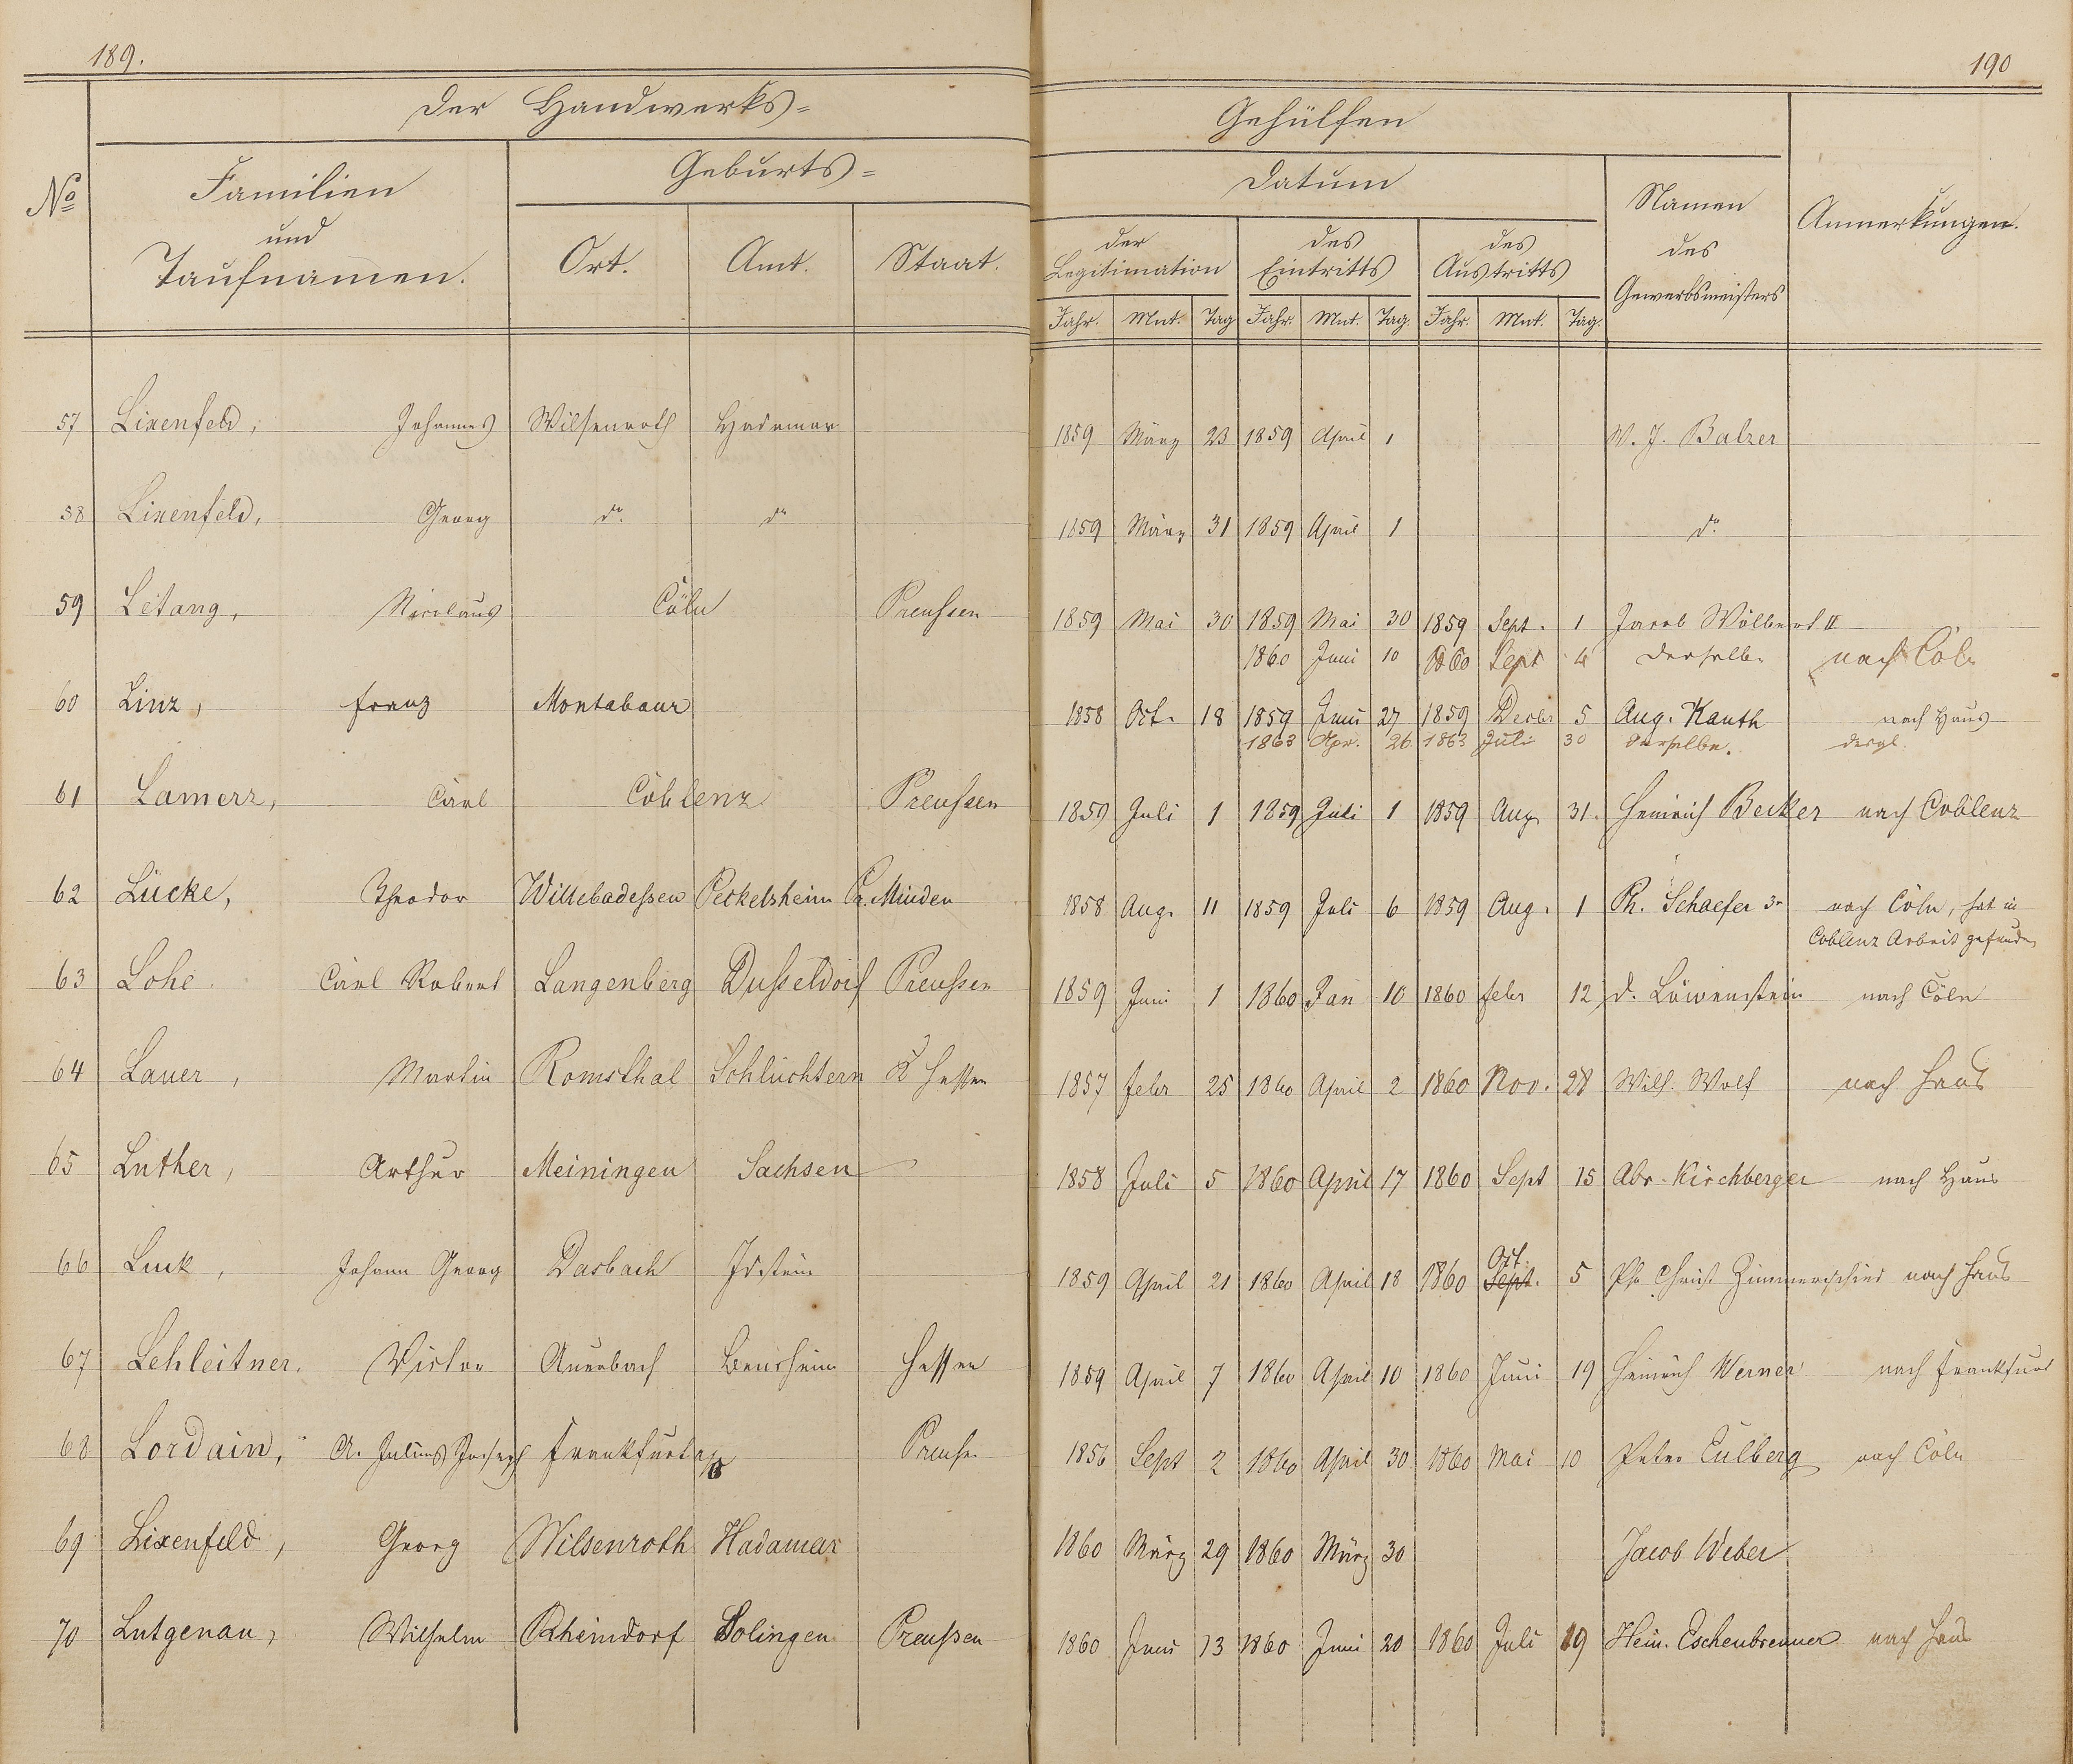 189.
190
Der Handwerks=
Gehülfen
No
Familien
und
Taufnamen.
Geburts=
Ort.
Amt.
Staat.
Datum
der
Legitimation
des
Eintritts
des
Austritts
Namen
des
Gewerbsmeisters
Anmerkungen.
Jahr. Mnt. Tag Jahr. Mnt. Tag. Jahr. Mnt. Tag.
57 Lixenfeld, Johannes Wilsenroth Hadamar 1859 März 23 1859 April 1 W. J. Balzer
58 Lixenfeld, Georg do. do 1859 März 31 1859 April 1 do.
59 Létang, Nicolaus Cöln Preußen 1859 Mai 30 1859 Mai 30 1859 Sept. 1 Jacob Wölbert II
1860 Juni 10 1860 Sept 4 derselbe nach Cöln
60 Linz, Franz Montabaur 1858 Oct. 18 1859 Juni 27 1859 Decbr 5 Aug. Kauth nach Haus
1863 Apr. 26. 1863 Juli 30 derselbe. desgl.
61 Lamerz, Carl Coblenz Preußen 1859 Juli 1 1859 Juli 1 1859 Aug 31. Heinrich Becker nach Coblenz
62 Lücke, Theodor Willebadeßen Peckelsheim Pr. Minden 1858 Aug. 11 1859 Juli 6 1859 Aug. 1 Ph. Schaefer 3r nach Cöln, hat in
Coblenz Arbeit gefunden
63 Lohe Carl Robert Langenberg Dußeldorf Preußen 1859 Juni 1 1860 Jan 10 1860 Febr 12 D. Löwenstein nach Cöln
64 Lauer, Martin Romsthal Schlüchtern K Hessen 1857 Febr 25 1860 April 2 1860 Nov. 28 Wilh. Wolf nach Haus
65 Luther, Arthur Meiningen Sachsen 1858 Juli 5 1860 April 17 1860 Sept 15 Abr. Kirchberger nach Haus
66 Luck, Johann Georg Dasbach Idstein 1859 April 21 1860 April 18 1860 Sept. Oct. 5 Ph. Christ Zimmerschied nach Haus
67 Lehleitner. Victor Auerbach Bensheim Hessen 1859 April 7 1860 April 10 1860 Juni 19 Heinrich Werner nach Frankfurt
68 Lordain, A. Julius Joseph Frankfurt a/o Preußen 1856 Sept 2 1860 April 30 1860 Mai 10 Peter Eulberg nach Cöln
69 Lixenfeld, Georg Wilsenroth Hadamar 1860 März 29 1860 März 30 Jacob Weber
70 Lutgenau, Wilhelm Rheindorf Solingen Preußen 1860 Juni 13 1860 Juni 20 1860 Juli 19 Hein. Eschenbrenner nach Haus